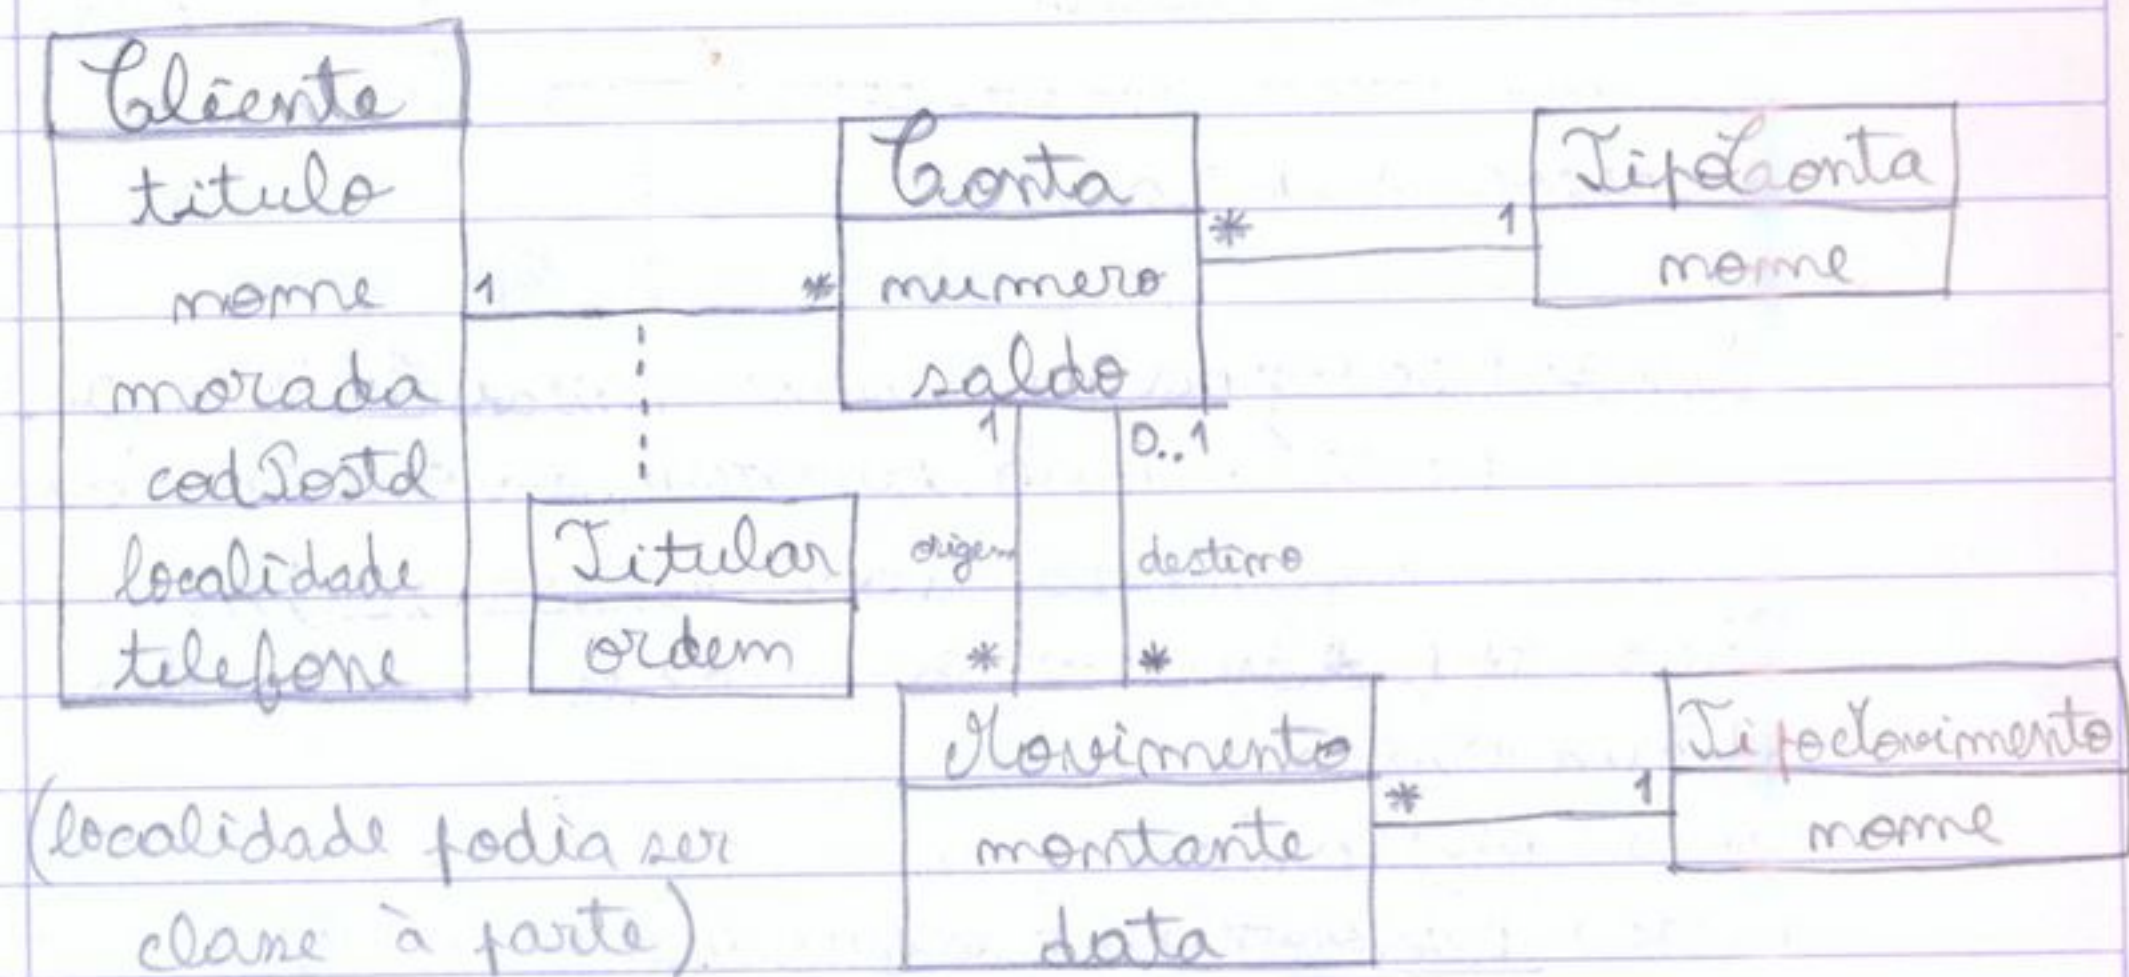 Cliente
titulo
nome
morada
codPostal
localidade
telefone
1
*
Titular
ordem
Conta
numero
saldo
*
1
TipoConta
nome
1
0..1
origem
destino
*
*
Movimento
montante
data
*
1
TipoMovimento
nome
(localidade podia ser
classe à parte)